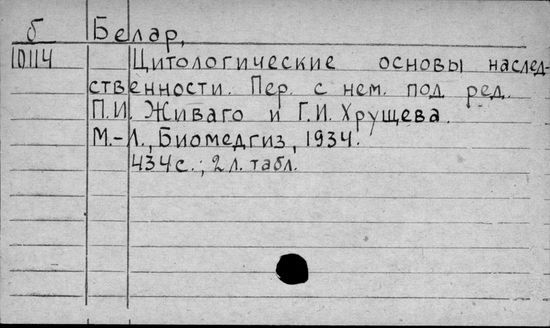 б Белар,
10114 Цитологические основы наслед-
ственности. Пер. с нем. под ред.
П.И. Живаго и Г.И. Хрущева.
М.-Л., Биомедгиз, 1934.
434с.; 2 л. табл.